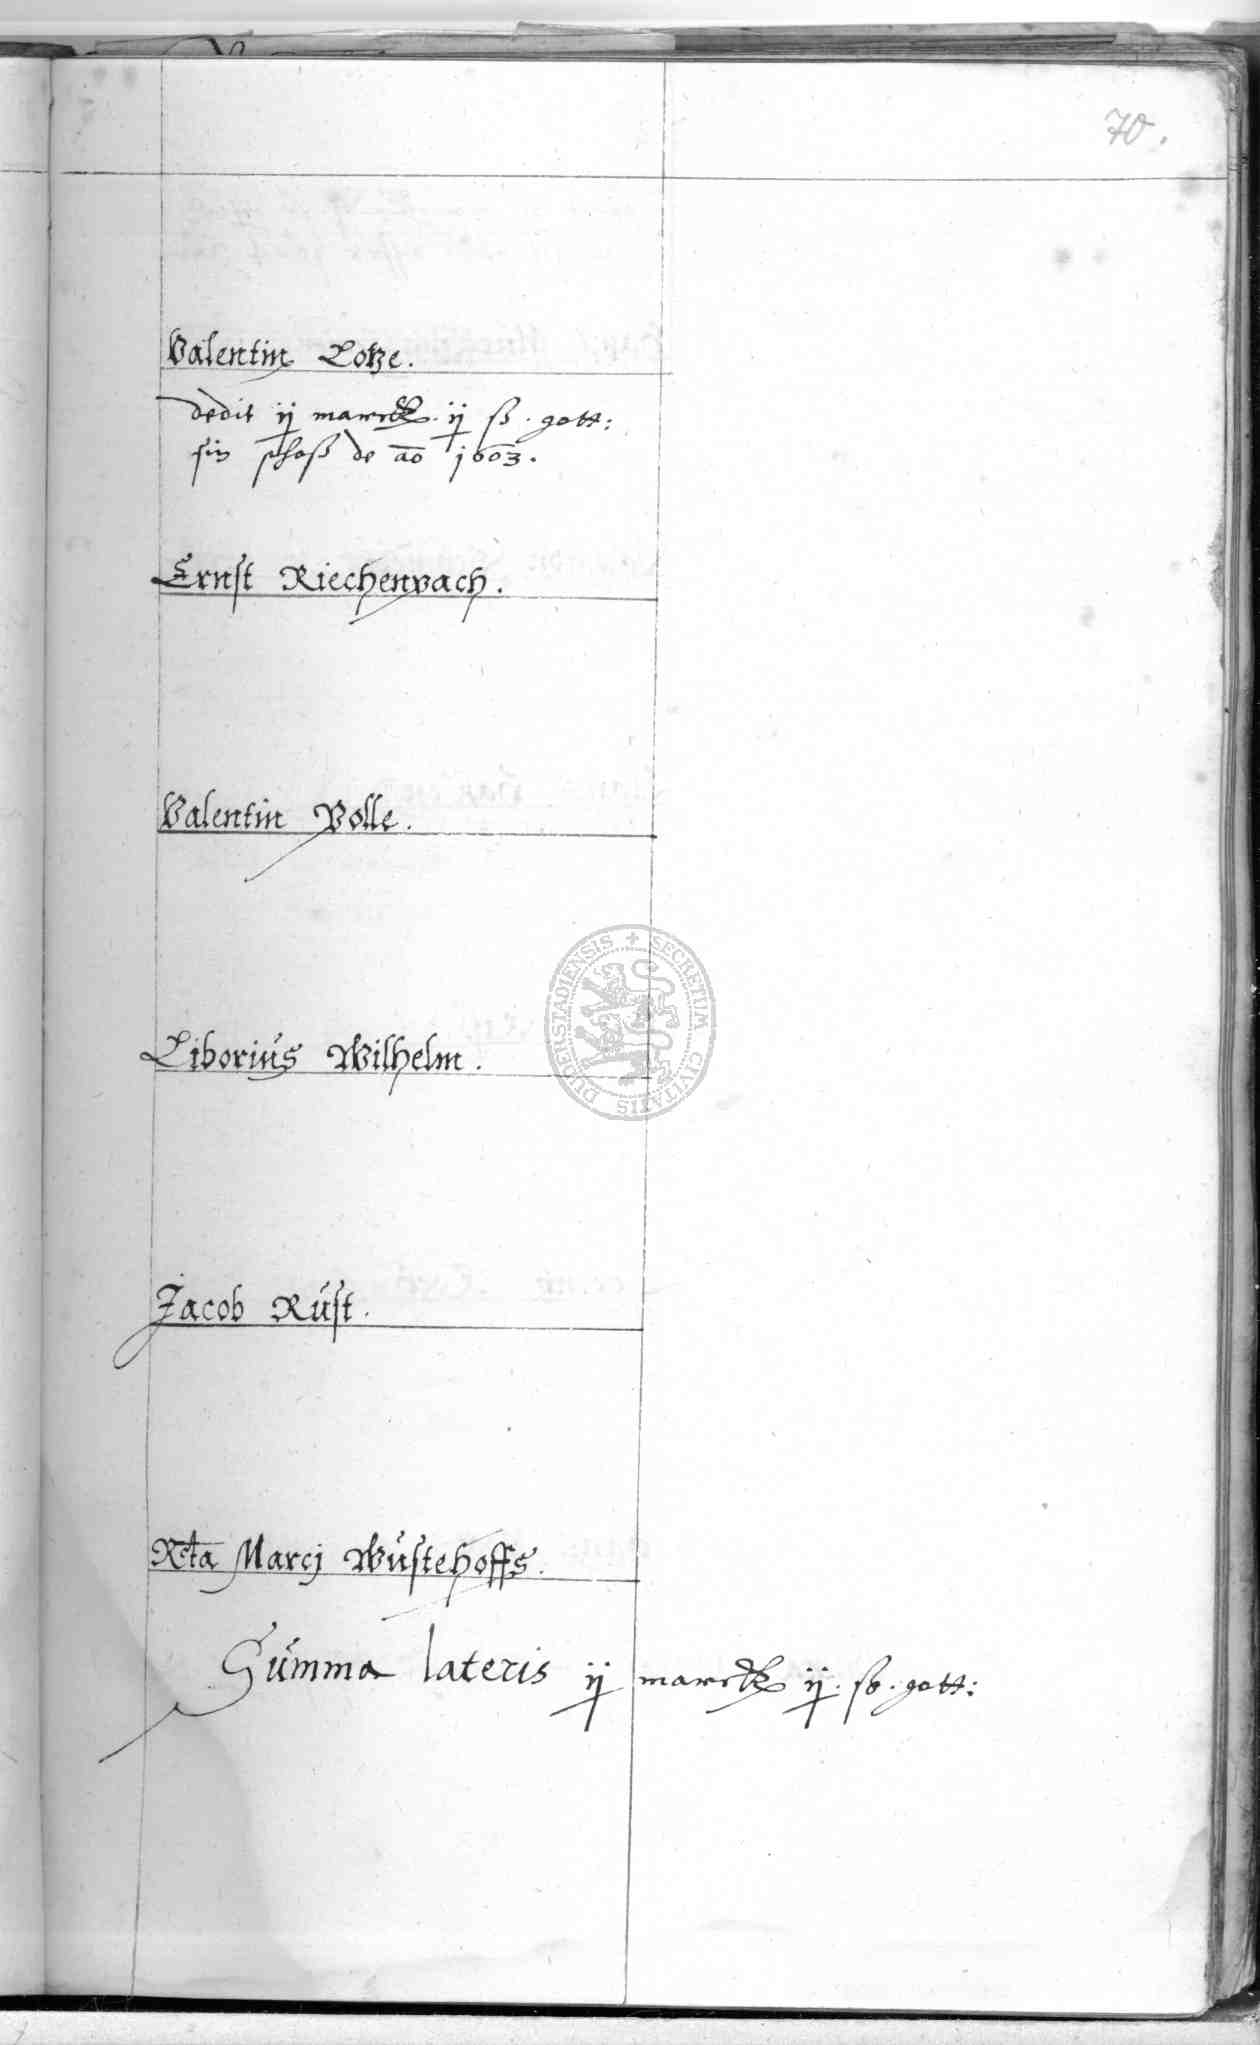 70.
Valentin Lotze.
dedit ij marck. ij ß. gott:
sin schoß de ao 1603.
Ernst Riechenbach.
Valentin Polle.
Liborius Wilhelm.
DUDERSTADIENSIS + SECRETUM CIVITATIS
Jacob Rust.
Rcta Marcj Wustehoffs.
Summa lateris ij marck ij. ß. gott: